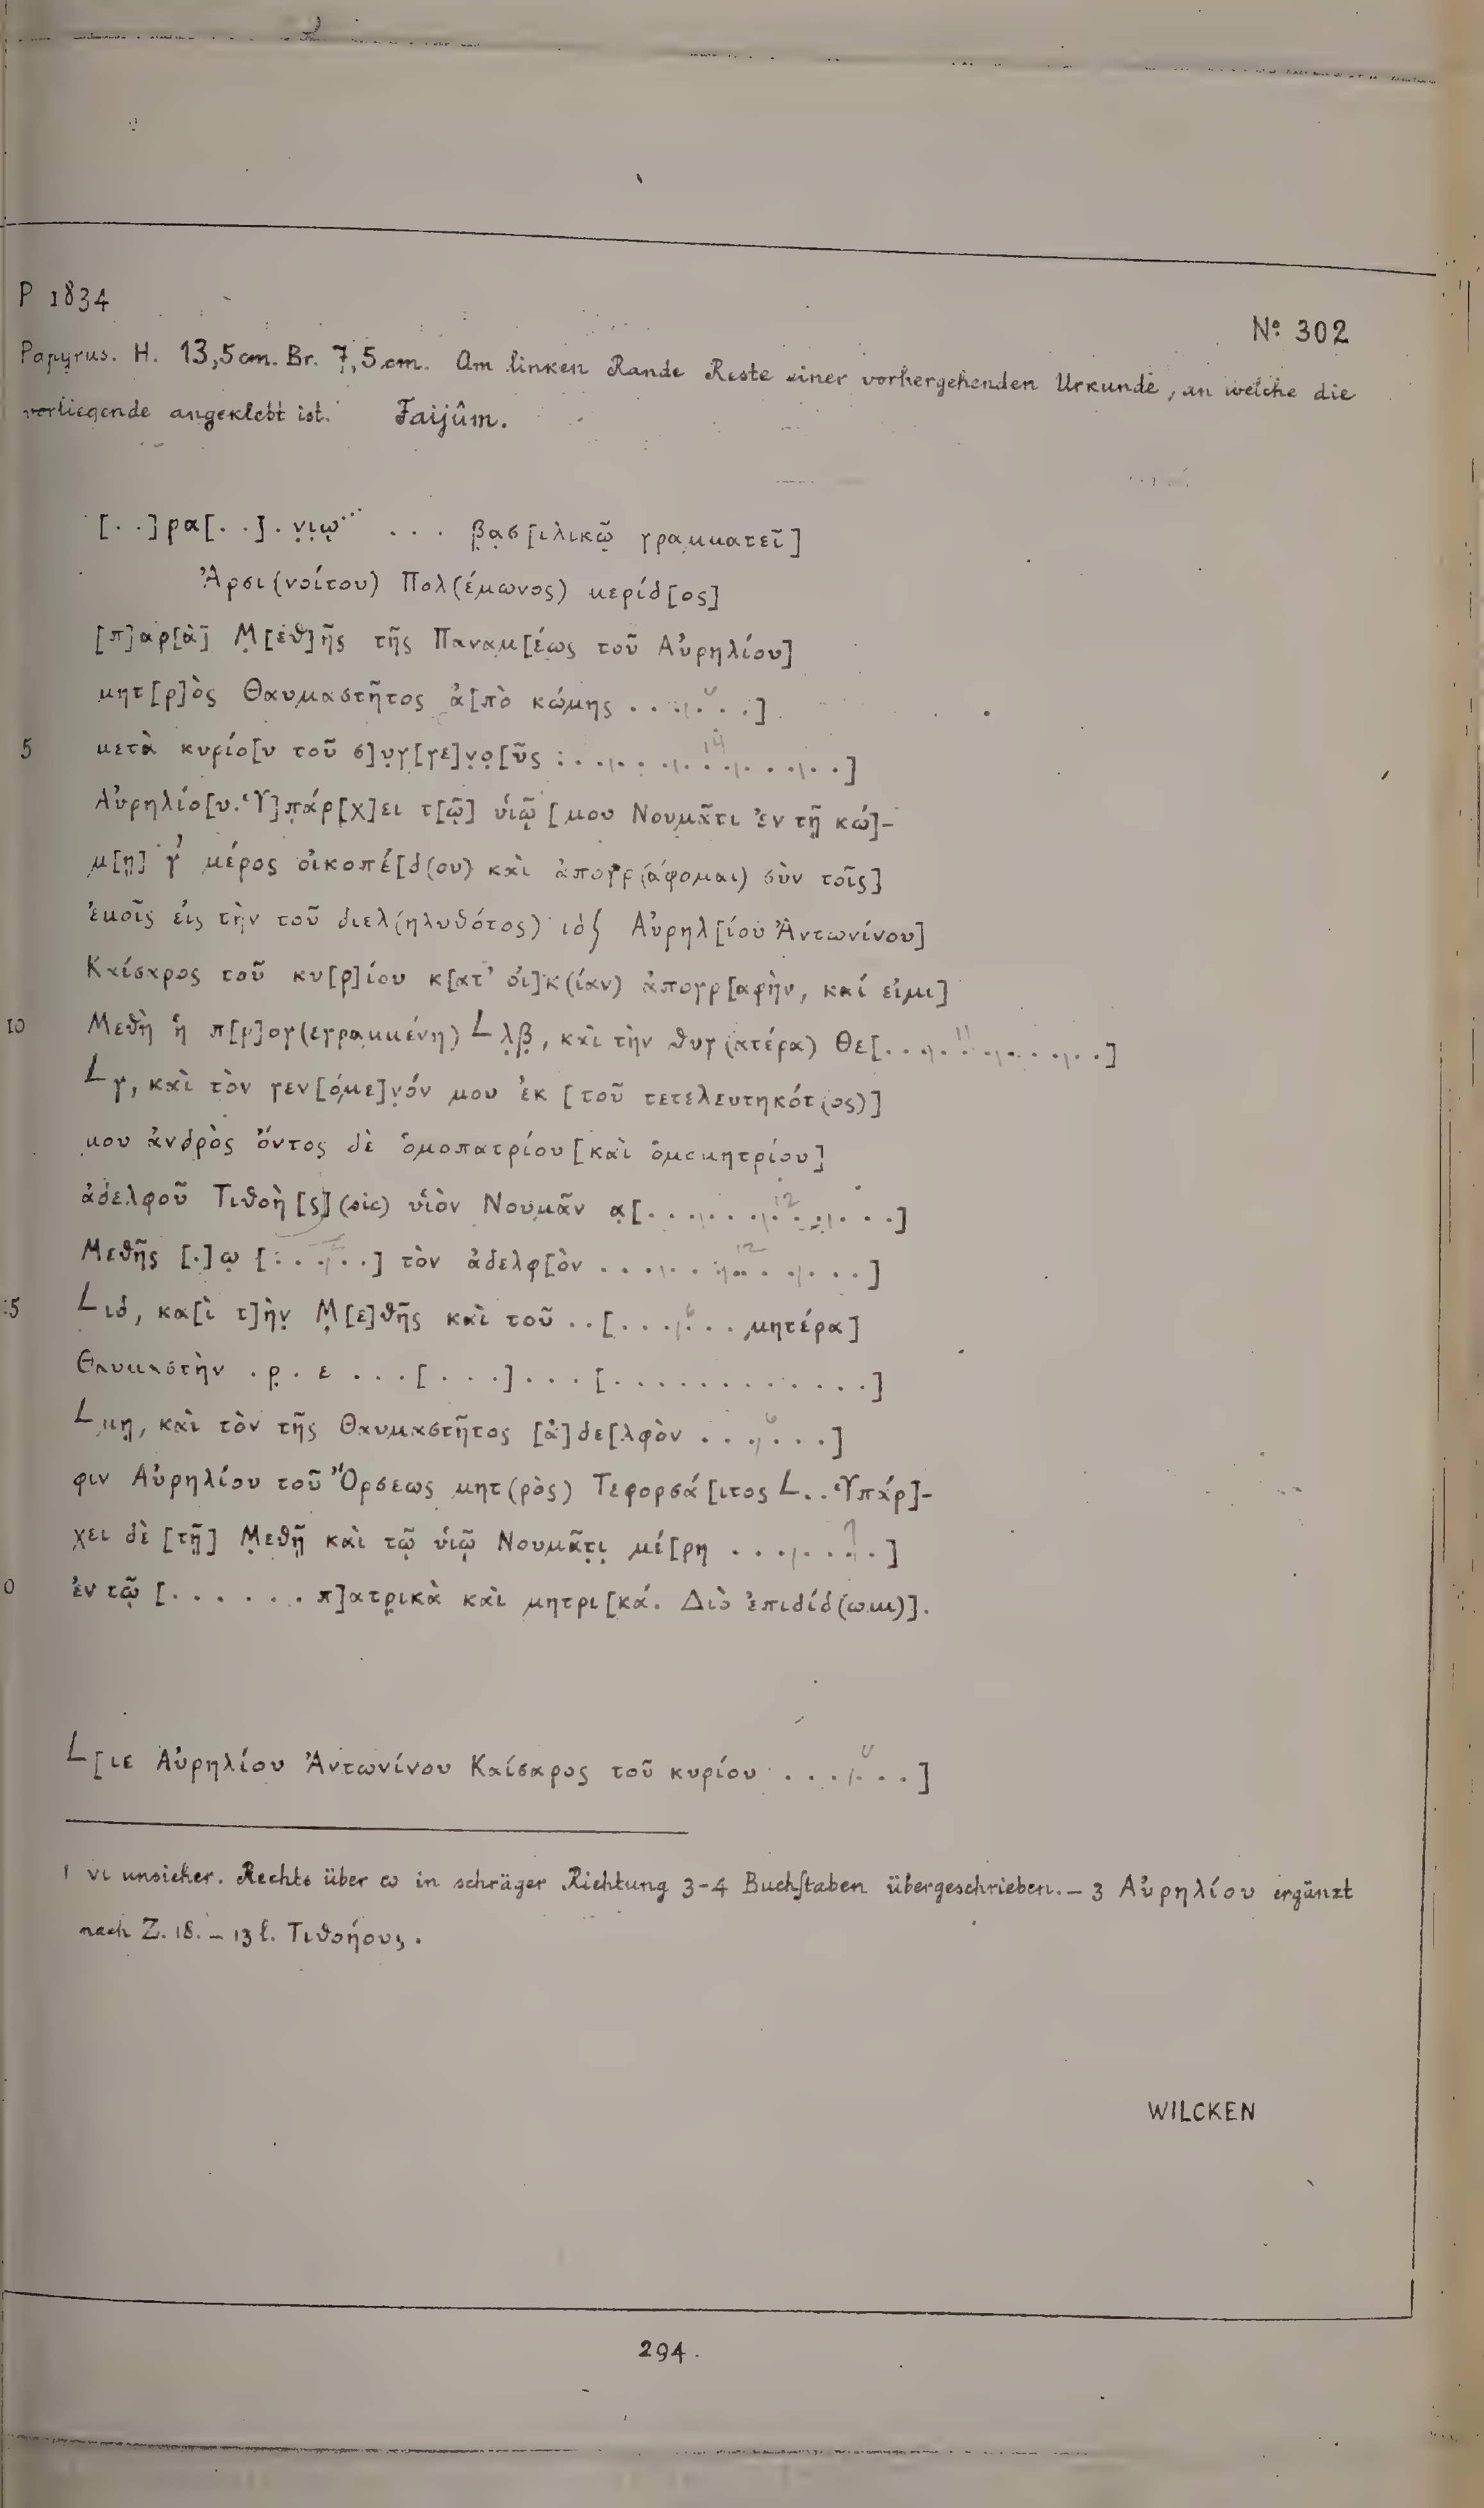 P 1834
Nº 302
Papyrus. H. 13,5 cm. Br. 7,5 cm. Am linken Rande Reste einer vorhergehenden Urkunde, an welche die
vorliegende angeklebt ist. Faijûm.
[. .]ρα[. .] . ṿιω̣ . . . . . . β̣α̣σ[ιλικῷ γραμματεῖ]
Ἀρσι(νοίτου) Πολ(έμωνος) μερίδ[ος]
[π]αρ[ὰ] Μ̣[εθ]ῆς τῆς Παναμ[έως τοῦ Αὐρηλίου]
μητ[ρ]ὸς Θαυμαστῆτος ἀ[πὸ κώμης . . . . . .]
5 μετὰ κυρίο[υ τοῦ σ]υ̣γ[γε]ν̣ο̣[ῦς . . . . . . . . . . . . . .]
Αὐρηλίο[υ. Ὑ]πάρ[χ]ει τ[ῷ] υἱῷ [μου Νουμᾶτι ἐν τῇ κώ]-
μ[ῃ] γ' μέρος οἰκοπέ[δ(ου) καὶ ἀπογρ(άφομαι) σὺν τοῖς]
ἐμοῖς εἰς τὴν τοῦ διελ(ηλυθότος) ιδ∫ Αὐρηλ[ίου Ἀντωνίνου]
Καίσαρος τοῦ κυ[ρ]ίου κ[ατ' οἰ]κ(ίαν) ἀπογρ[αφὴν, καί εἰμι]
10 Μεθὴ ἡ π[ρ]ογ(εγραμμένη) L λ̣β̣, καὶ τὴν θυγ(ατέρα) Θε[. . . . . . . . . . .]
L γ, καὶ τὸν γεν[όμε]ν̣όν μου ἐκ [τοῦ τετελευτηκότ(ος)]
μου ἀνδρὸς ὄντος δὲ ὁμοπατρίου [καὶ ὁμομητρίου]
ἀδελφοῦ Τιθοὴ[ς] (sic) υἱὸν Νουμᾶν α̣[. . . . . . . . . . . .]
Μεθῆς [.]ω̣ [. . . . .] τὸν ἀδελφ[ὸν . . . . . . . . . . . .]
15 L ιδ, κα[ὶ τ]ὴν̣ Μ̣[ε]θῆς καὶ τοῦ . . [. . . . . . μητέρα]
Θαυμαστὴν . ρ̣ . ε . . . [. . .] . . . [. . . . . . . . . . . .]
L μη̣, καὶ τὸν τῆς Θαυμαστῆτος [ἀ]δε[λφὸν . . . . . .]
φιν Αὐρηλίου τοῦ Ὄρσεως μητ(ρὸς) Τεφορσά[ιτος L . . Ὑπάρ]-
χει δὲ [τῇ] Μ̣εθῇ καὶ τῷ υἱῷ Νουμᾶτ̣ι̣ μέ[ρη . . . . . . .]
20 ἐν τῷ [. . . . . . π]ατρ̣ικὰ καὶ μητρι[κά. Διὸ ἐπιδίδ(ωμι)].
L [ιε Αὐρηλίου Ἀντωνίνου Καίσαρος τοῦ κυρίου . . . . . .]
1 νι unsicher. Rechts über ω in schräger Richtung 3-4 Buchstaben übergeschrieben. – 3 Αὐρηλίου ergänzt
nach Z. 18. – 13 l. Τιθοήους.
WILCKEN
294.